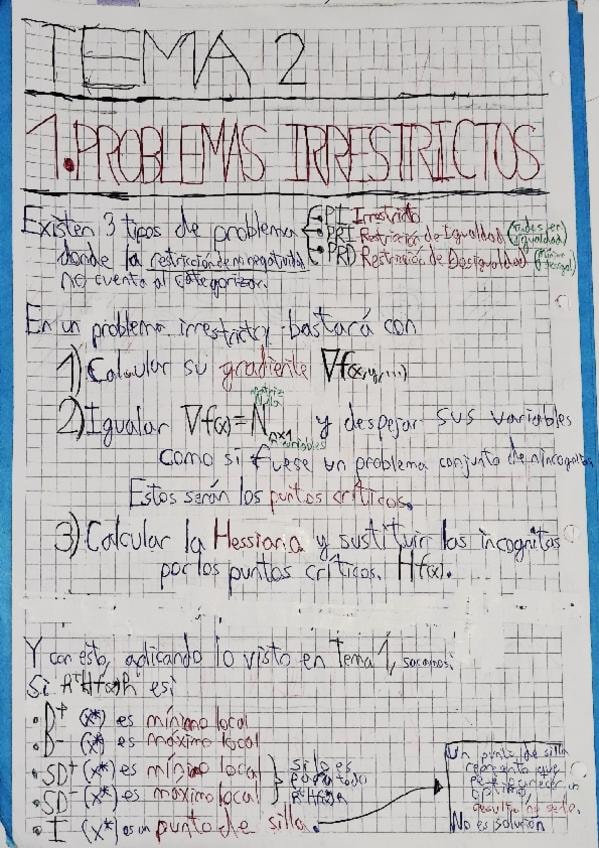 TEMA 2
1. PROBLEMAS IRRESTRICTOS
Existen 3 tipos de problema
donde la restricción de no negatividad
no cuenta al categorizar.
PI Irrestricto
PRI Restricción de Igualdad
PRD Restricción de Desigualdad
En un problema irrestricto bastará con
1) Calcular su gradiente ∇f(x,y,...)
2) Igualar ∇f(x) = N nx1 y despejar sus variables
matriz nula
variables
como si fuese un problema conjunto de n incognitas
Estos serán los puntos críticos.
3) Calcular la Hessiana y sustituir las incognitas
por los puntos críticos. Hf(x).
Y con esto, aplicando lo visto en Tema 1, sacamos:
Si hᵗHf(x)h es:
• D⁺ (x*) es mínimo local
• D⁻ (x*) es máximo local
• SD⁺ (x*) es mínimo local
• SD⁻ (x*) es maximo local
si lo es para todo
• I (x*) es un punto de silla.
Un punto de silla
representa que
optimo,
no serlo.
No es solución